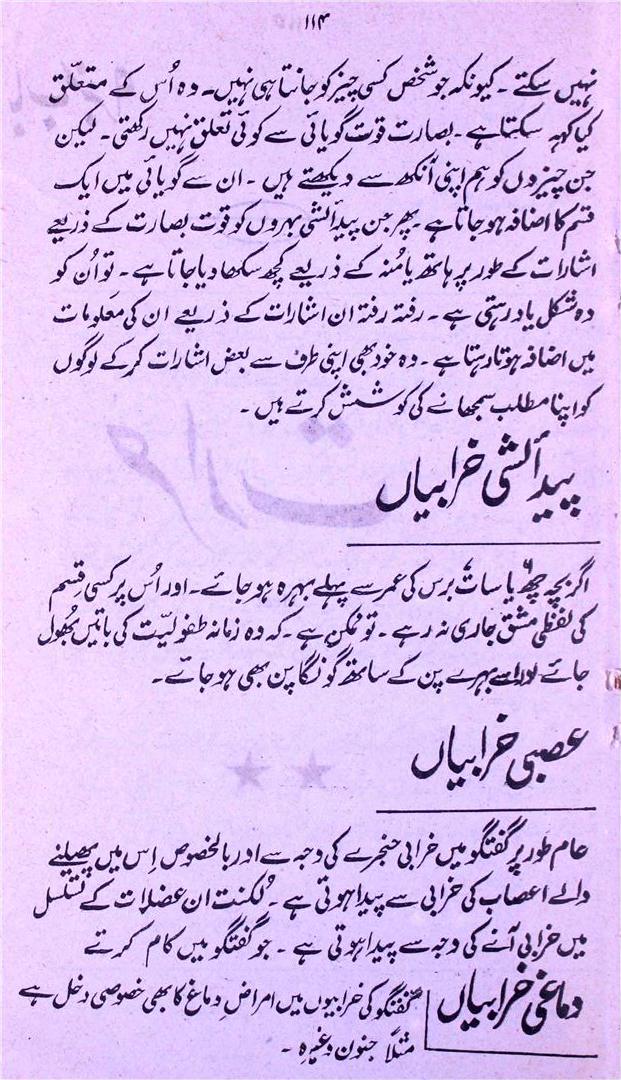 ۱۱۴
نہیں سکتے۔ کیونکہ جو شخص کسی چیز کو جانتا ہی نہیں۔ وہ اُس کے متعلّق
کیا کہہ سکتا ہے۔ بصارت قوت گویائی سے کوئی تعلق نہیں رکھتی۔ لیکن
جن چیزوں کو ہم اپنی آنکھ سے دیکھتے ہیں۔ ان سے گویائی میں ایک
قسم کا اضافہ ہو جاتا ہے۔ پھر جن پیدائشی بہروں کو قوت بصارت کے ذریعے
اشارات کے طور پر ہاتھ یا مُنہ کے ذریعے کچھ سکھا دیا جاتا ہے۔ تو اُن کو
وہ شکل یاد رہتی ہے۔ رفتہ رفتہ ان اشارات کے ذریعے ان کی معلومات
میں اضافہ ہوتا رہتا ہے۔ وہ خود بھی اپنی طرف سے بعض اشارات کر کے لوگوں
کو اپنا مطلب سمجھانے کی کوشش کرتے ہیں۔
پیدائشی خرابیاں
اگر بچہ چھ یا سات برس کی عمر سے پہلے بہرہ ہو جائے۔ اور اُس پر کسی قِسم
کی لفظی مشق جاری نہ رہے۔ تو ممکن ہے۔ کہ وہ زمانہ طفولیّت کی باتیں بُھول
جائے اور اسے بہرے پن کے ساتھ گونگا پن بھی ہو جائے۔
عصبی خرابیاں
عام طور پر گفتگو میں خرابی حنجرے کی وجہ سے اور بالخصوص اِس میں پھیلنے
والے اعصاب کی خرابی سے پیدا ہوتی ہے۔ لُکنت ان عضلات کے تسلسل
میں خرابی آنے کی وجہ سے پیدا ہوتی ہے۔ جو گفتگو میں کام کرتے
دماغی خرابیاں
گفتگو کی خرابیوں میں امراضِ دماغ کا بھی خصوصی دخل ہے
مثلاً جنون وغیرہ۔